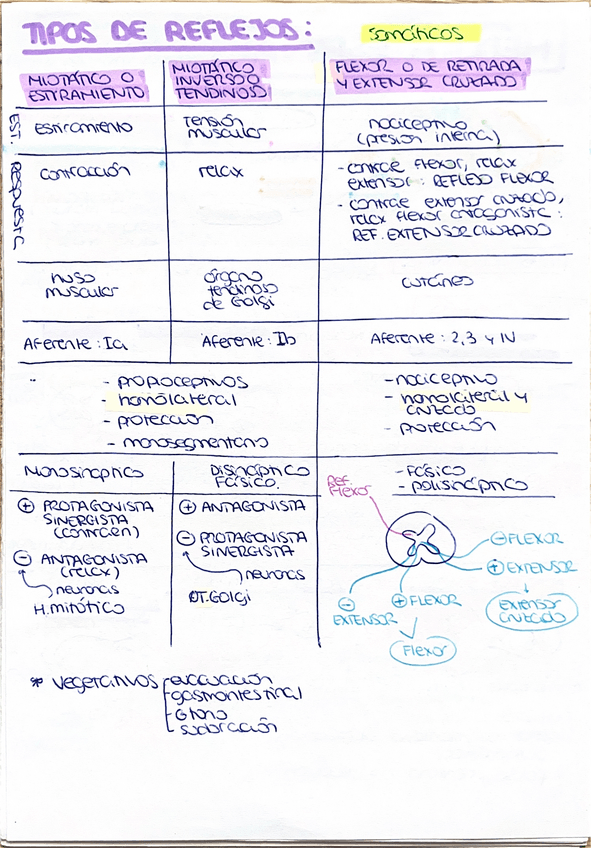 TIPOS DE REFLEJOS:
somáticos
MIOTÁTICO O
ESTIRAMIENTO
MIOTÁTICO
INVERSO O
TENDINOSO
FLEXOR O DE RETIRADA
Y EXTENSOR CRUZADO
EST.
estiramiento
tensión
muscular
nociceptivo
(presión interna)
Respuesta
contracción
relax
- contrae flexor, relax
extensor: REFLEJO FLEXOR
- contrae extensor cruzado,
relax flexor antagonista:
REF. EXTENSOR CRUZADO
huso
muscular
órgano
tendinoso
de Golgi
cutáneo
Aferente: Ia
Aferente: Ib
Aferente: 2, 3 y IV
- propioceptivos
- homolateral
- protección
- monosegmentario
- nociceptivo
- homolateral y
cruzado
- protección
Monosináptico
DISINÁPTICO
FÁSICO.
- Fásico
- polisináptico
+ PROTAGONISTA
SINERGISTA
(contraen)
- ANTAGONISTA
(relax)
neuronas
H. mitótico
+ ANTAGONISTA
- PROTAGONISTA
SINERGISTA
neuronas
OT. GOLGI
Ref.
Flexor
- FLEXOR
+ EXTENSOR
- EXTENSOR
+ FLEXOR
Extensor
cruzado
Flexor
* Vegetativos
- evacuación
- gastrointestinal
- sudoración